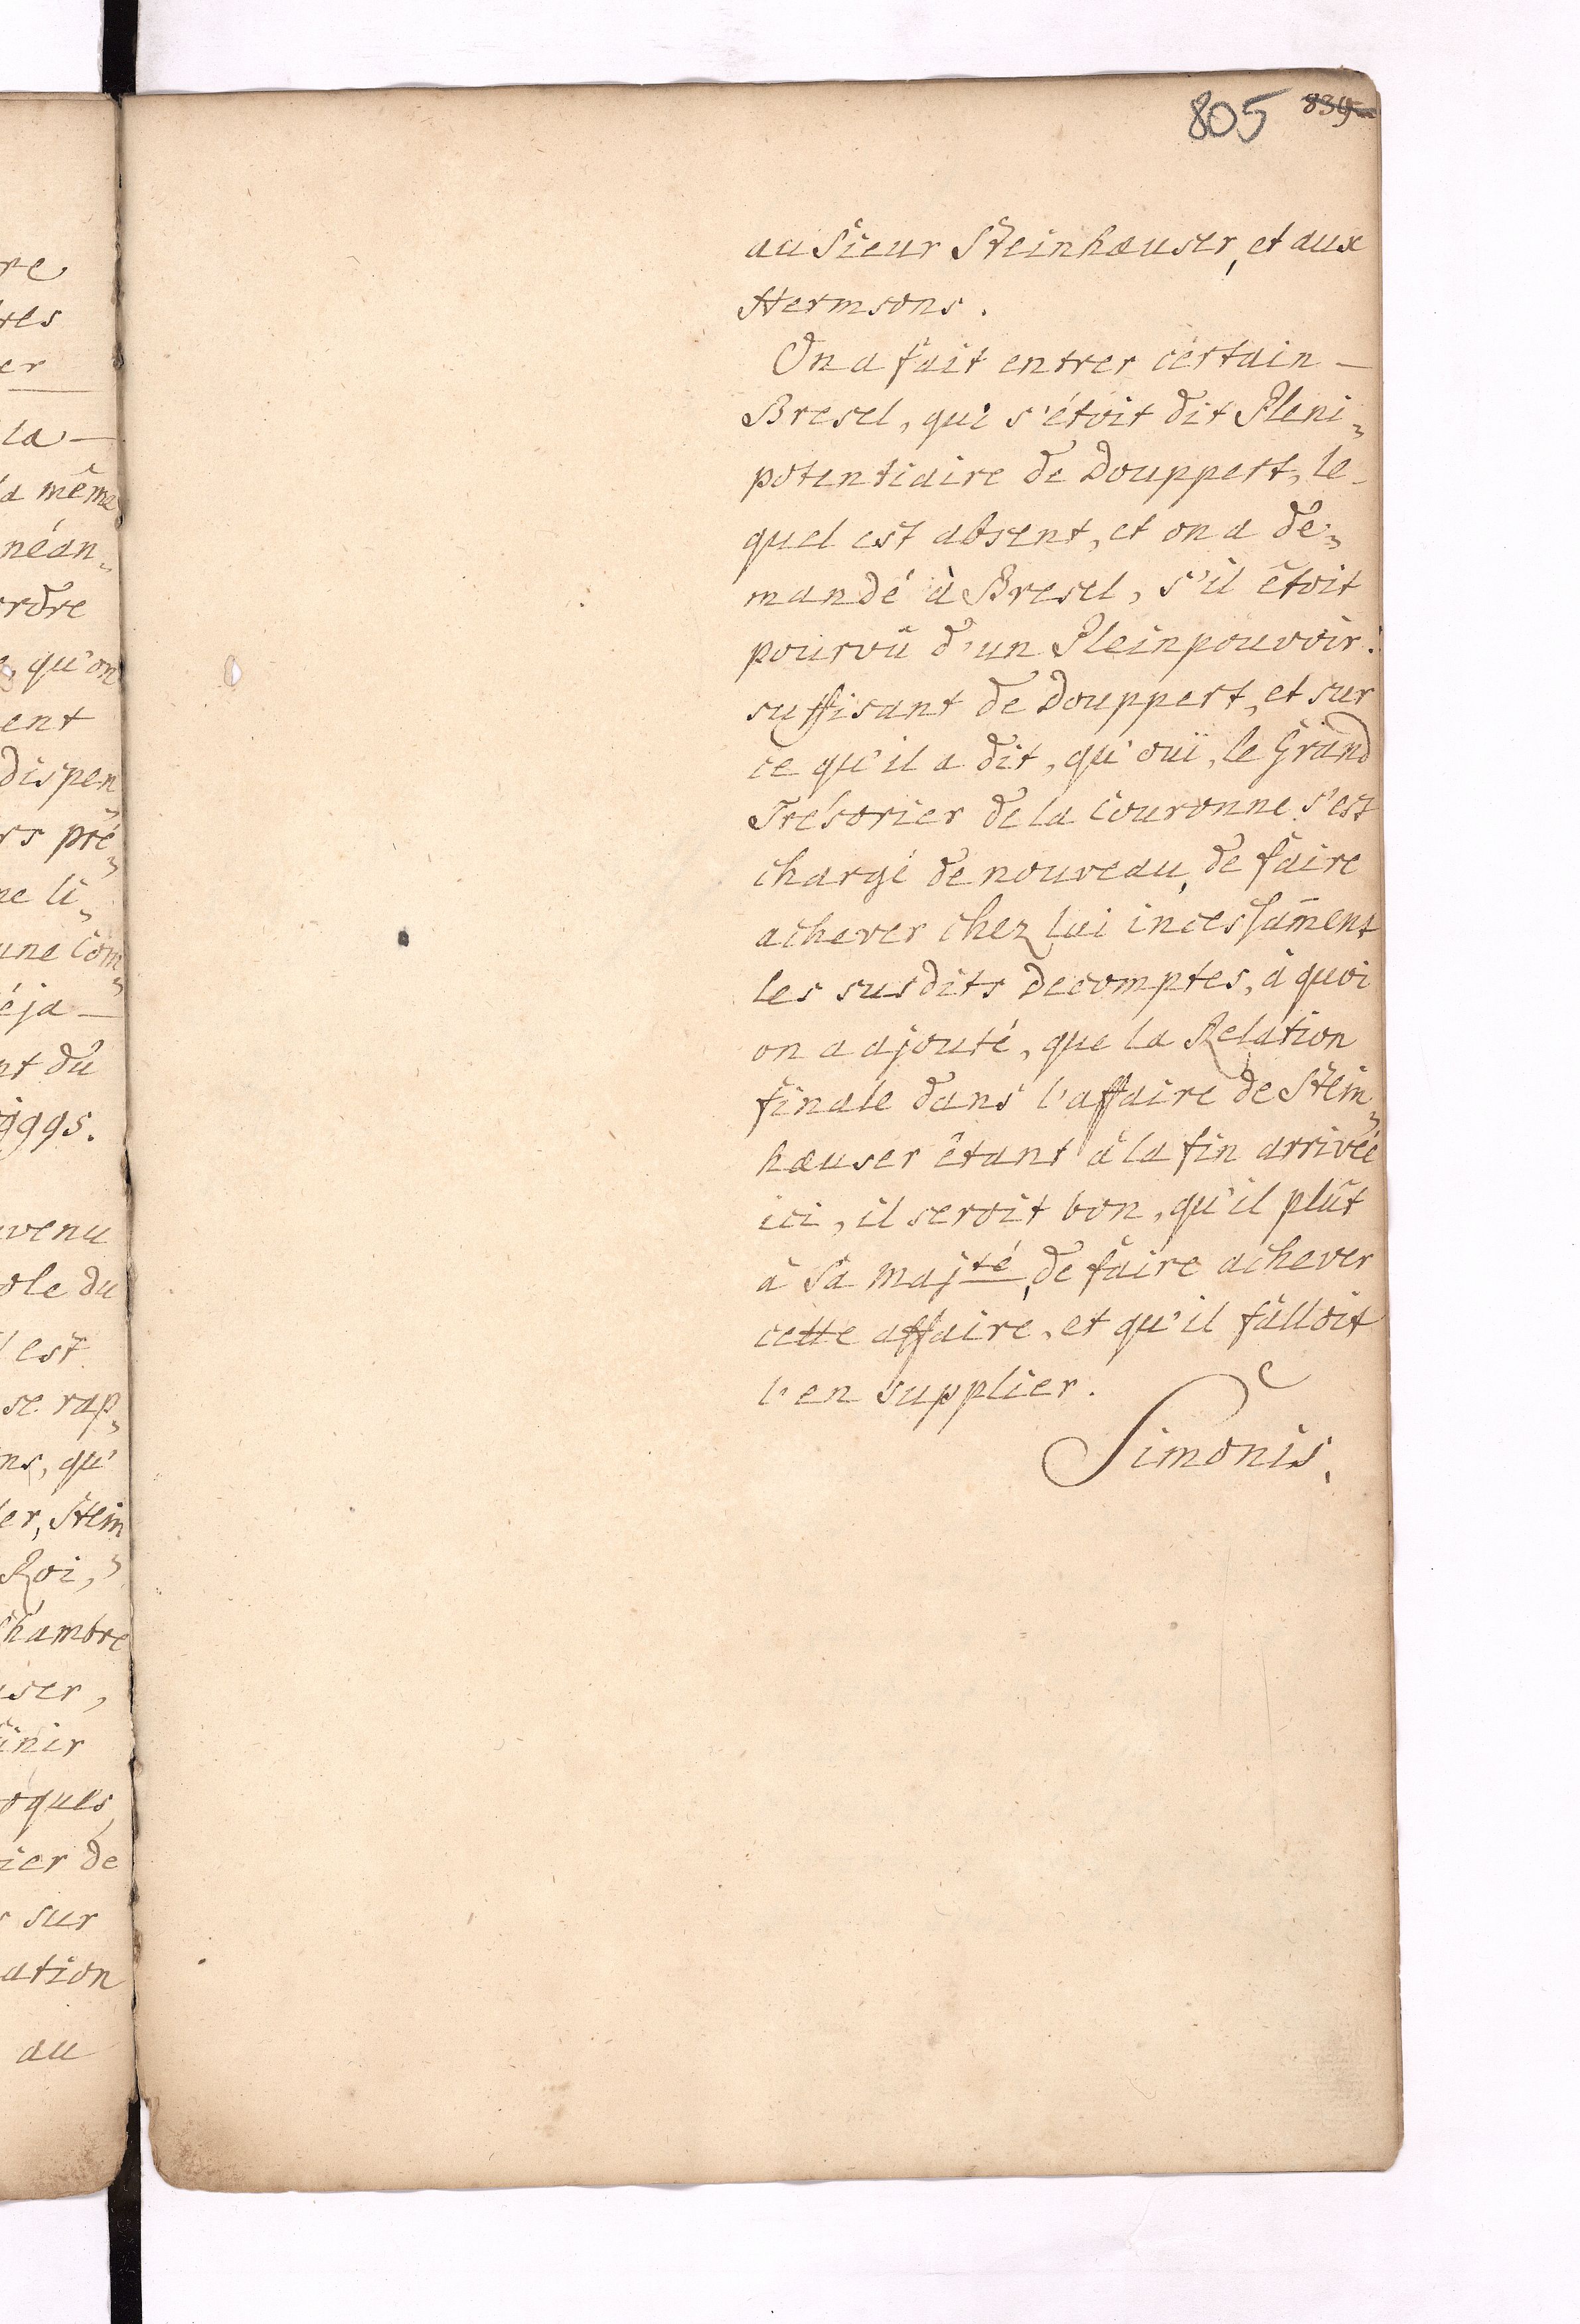 re
res
er
la
la même
néan„
ordre
qu'on
ent
dispen
rs pré„
ne li„
une Com„
éja
nt du
iggs.
venu
ole du
est
se rap„
ns, qu'
er, Stein
Roi,
Chambre
user,
finir
oques,
ier de
sur
ation
au
805 839
au Sieur Steinhæuser, et aux
Hermsons.
On a fait entrer certain
Bresel, qui s'étoit dit Pleni„
potentiaire de Douppert, le
quel est absent, et on a de„
mandé à Bresel, s'il étoit
pourvû d'un Pleinpouvoir
suffisant de Douppert, et sur
ce qu'il a dit, qu'ouï, le Grand
Trésorier de la Couronne s'est
chargé de nouveau, de faire
achever chez lui incessam̄ent
les susdits Decomptes, à quoi
on a ajouté, que la Relation
finale dans l'affaire de Stein„
hæuser étant à la fin arrivée
ici, il seroit bon, qu'il plût
à Sa Majté, de faire achever
cette affaire, et qu'il falloit
l'en supplier.
Simonis.